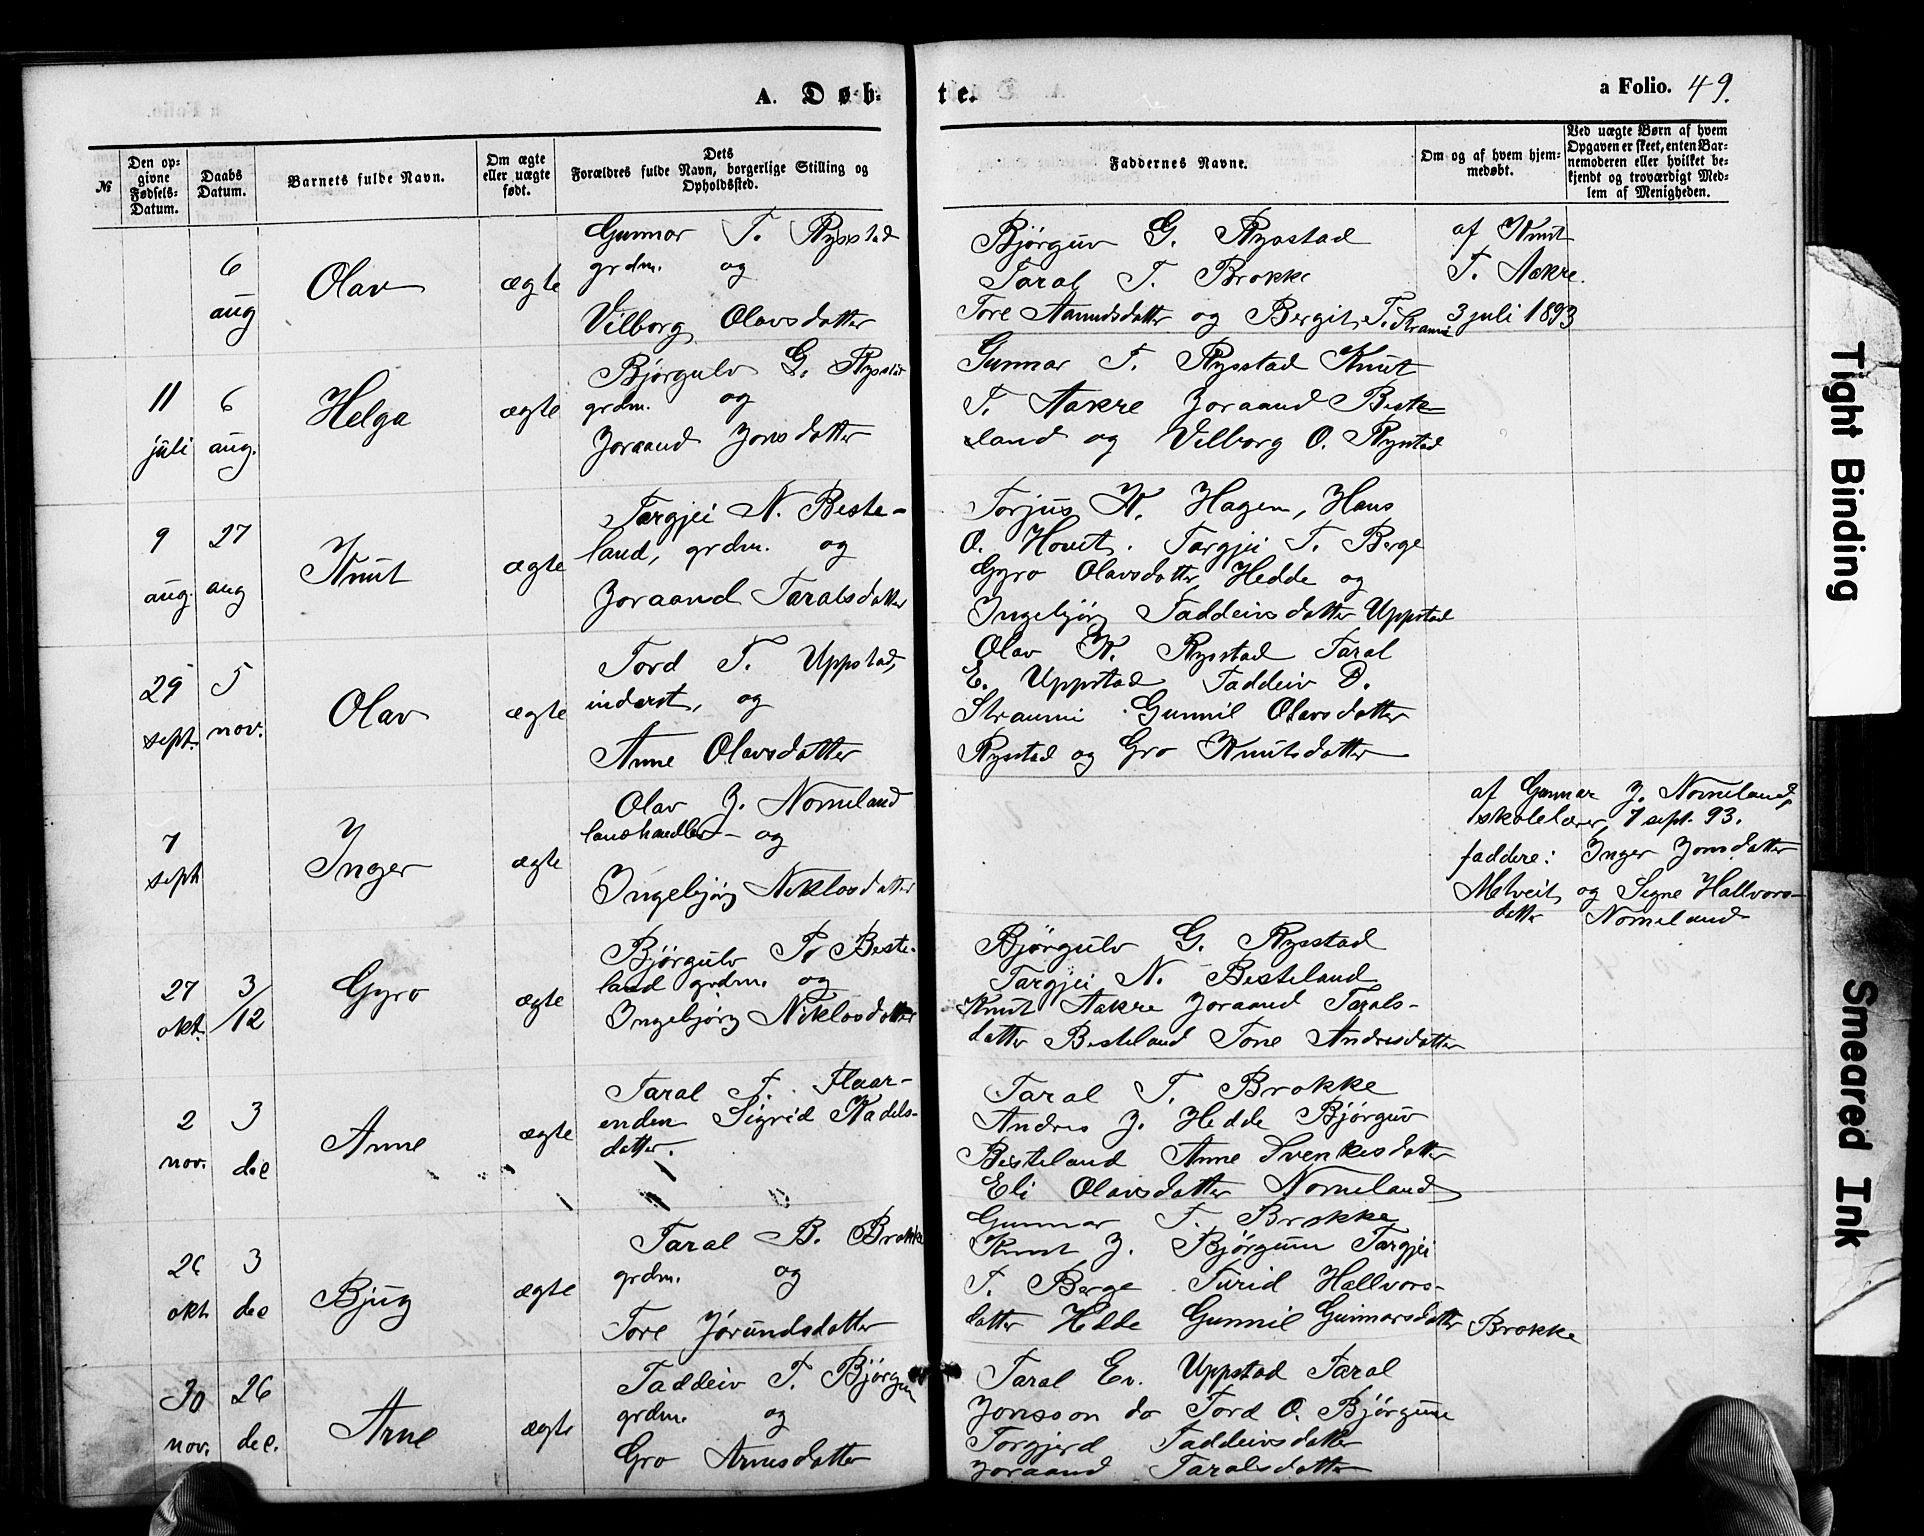 A. Døb-
te.
a Folio. 49.
№
Den op-
givne
Fødsels-
Datum.
Daabs
Datum.
Barnets fulde Navn.
Om ægte
eller uægte
født.
Dets
Forældres fulde Navn, borgerlige Stilling og
Opholdssted.
Faddernes Navne.
Om og af hvem hjem-
medøbt.
Ved uægte Børn af hvem
Opgaven er skeet, enten Bar-
nemoderen eller hvilket be-
kjendt og troværdigt Med-
lem af Menigheden.
6
aug
Olav
ægte
Gunnar T. Rysstad
grdm. og
Vilborg Olavsdatter
Bjørguv G. Rysstad
Taral T. Brokke
Tore Aamundsdatter og Bergit T. Straume
af Knut
T. Aakre.
3 juli 1893
11 6
juli aug.
Helga
ægte
Bjørgulv G. Rysstad
grdm. og
Joraand Jonsdatter
Gunnar T. Rysstad Knut
T. Aakre Joraand Beste-
land og Vilborg O. Rysstad
9 27
aug. aug
Knut
ægte
Targjei N. Beste-
land, grdm. og
Joraand Taralsdatter
Torjus K. Hagen, Hans
O. Hovet. Targjei T. Berge
Gyro Olavsdatter Hedde og
Ingebjørg Taddeivsdatter Uppstad
29 5
sept. nov.
Olav
ægte
Tord T. Uppstad,
inderst, og
Anne Olavsdatter
Olav K. Rysstad Taral
E. Uppstad Taddeiv D.
Straumi Gunnil Olavsdatter
Rysstad og Gro Knutsdatter
7
sept
Inger
ægte
Olav J. Nomeland
landhandler og
Ingebjørg Niklosdatter
af Gunnar J. Nomeland,
skolelærer, 7 sept. 93.
faddere: Inger Jonsdatter
Metveit og Signe Hallvors-
datter Nomeland
27 3/12
okt.
Gyro
ægte
Bjørgulv P. Beste-
land grdm. og
Ingebjørg Niklosdatter
Bjørgulv G. Rysstad
Targjei N. Besteland
Knut Aakre Joraand Tarals-
datter Besteland Tone Andresdatter
2 3
nov. dec
Anne
ægte
Taral T. Flaar-
enden Sigrid Kadels-
datter.
Taral T. Brokke
Andres J. Hedde Bjørguv
Besteland Anne Svenkesdatter
Eli Olavsdatter Nomeland
26 3
okt dec
Bjug
ægte
Taral B. Brokke
grdm. og
Tore Jørundsdatter
Gunnar T. Brokke
Knut J. Bjørgum Targjei
T. Berge Turid Hallvors-
datter Hedde Gunnil Gunnarsdatter Brokke
30 26
nov. dec.
Arne
ægte
Taddeiv T. Bjørgum
grdm. og
Gro Arnesdatter
Taral Ev. Uppstad Taral
Jonsson do Tord O. Bjørgum
Torgjerd Taddeivsdatter
Joraand Taralsdatter
Tight Binding
Smeared Ink